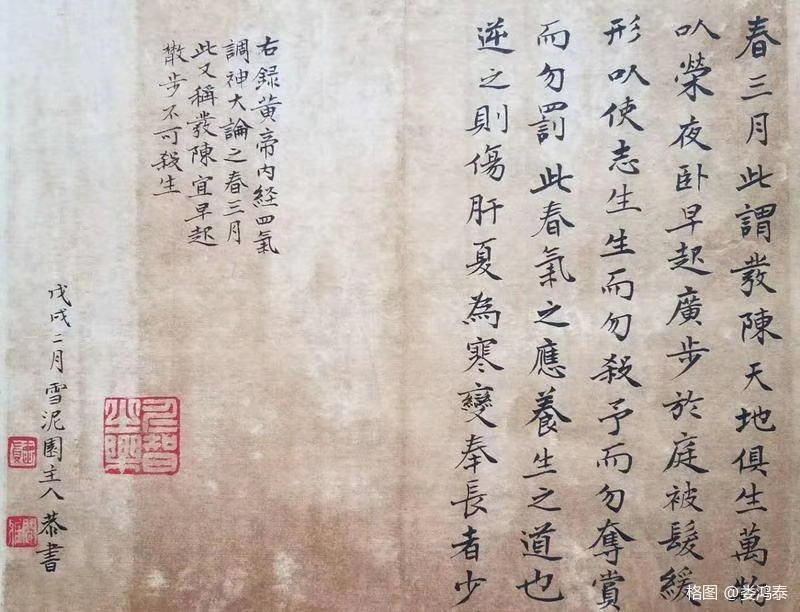 春三月此謂發陳天地俱生萬物
以榮夜卧早起廣步於庭被髮緩
形以使志生生而勿殺予而勿奪賞
而勿罰此春氣之應養生之道也
逆之則傷肝夏為寒變奉長者少
右録黄帝内経四氣
調神大論之春三月
此又稱發陳宜早起
散步不可殺生
戊戌二月雪泥園主人恭書
格图 @娄鸿泰